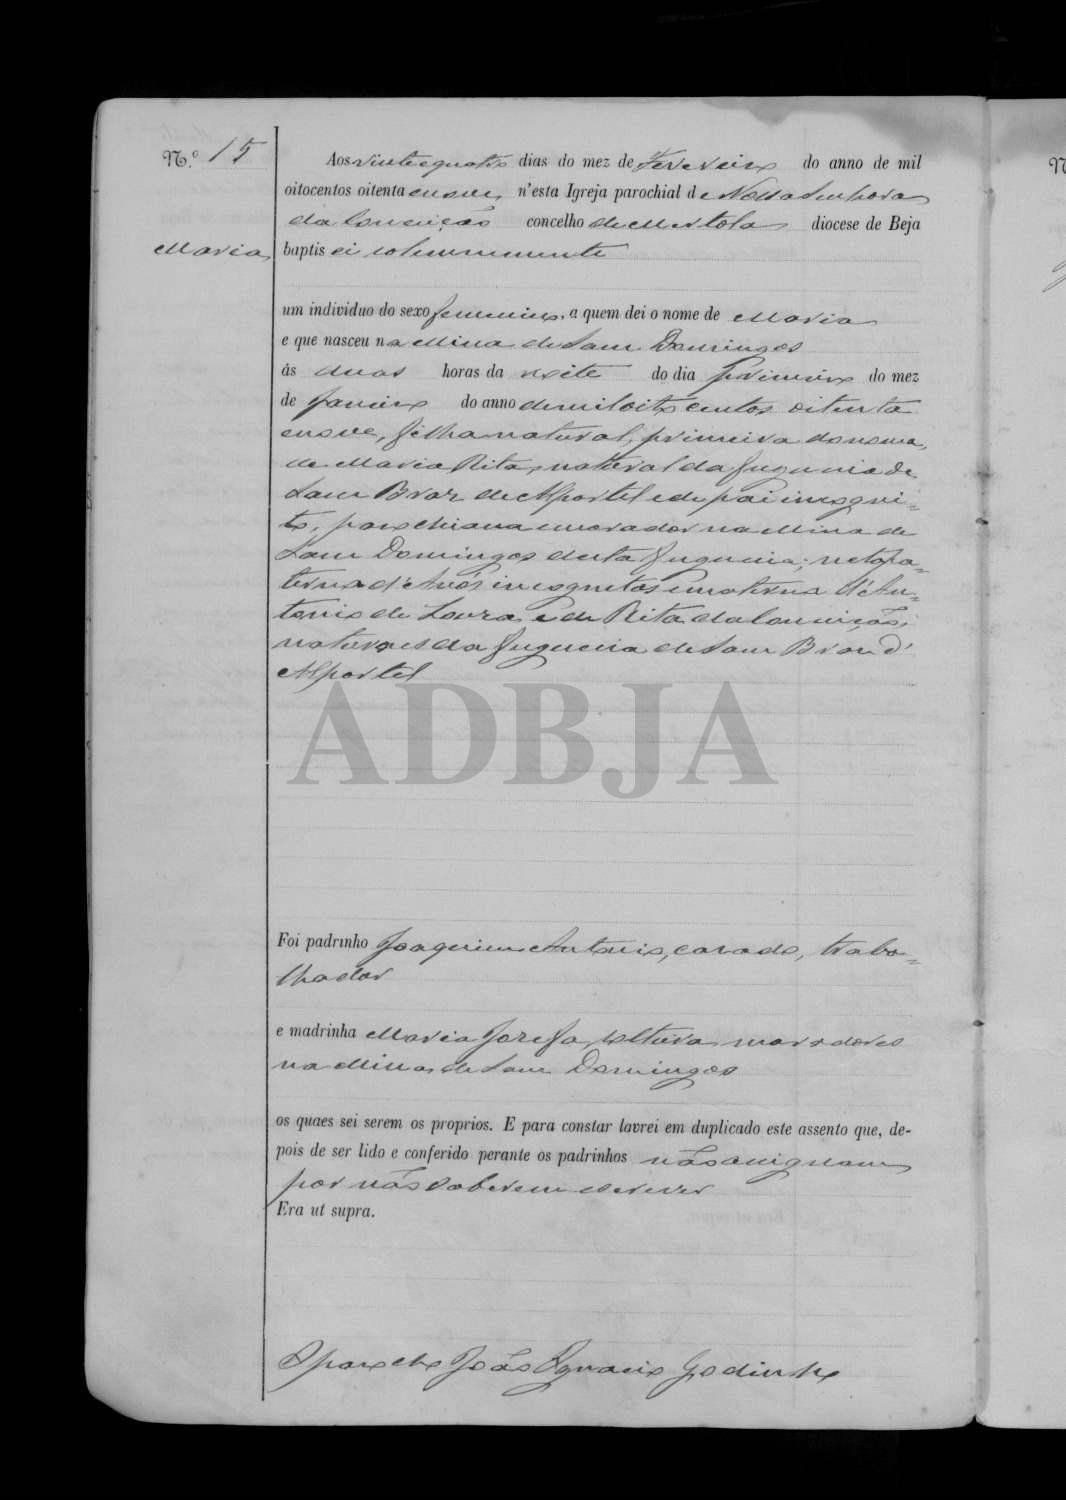 N.º 15
Aos vinte e quatro dias do mez de Fevereiro do anno de mil
oitocentos oitenta e nove, n'esta Igreja parochial de Nossa Senhora
da Conceição concelho de Mertola diocese de Beja
Maria
baptisei solemnemente
um individuo do sexo femenino, a quem dei o nome de Maria
e que nasceu na Mina de Sam Domingos
ás duas horas da noite do dia primeiro do mez
de Janeiro do anno de mil oito centos oitenta
e nove, filha natural, primeira do nome,
de Maria Rita, natural da freguezia de
Sam Braz de Alportel e de pai incogni-
to, parochiana e morador na Mina de
Sam Domingos desta freguezia; neta pa-
terna d'Avós incognitos e materna d'An-
tonio de Loura e de Rita da Conceição,
naturaes da freguezia de Sam Braz d'
Alportel
ADBJA
Foi padrinho Joaquim Antonio, casado, traba-
lhador
e madrinha Maria Jozefa, solteira moradores
na Mina de Sam Domingos
os quaes sei serem os proprios. E para constar lavrei em duplicado este assento que, de-
pois de ser lido e conferido perante os padrinhos não assignam
por não saberem escrever
Era ut supra.
O parocho João Ignacio Godinho